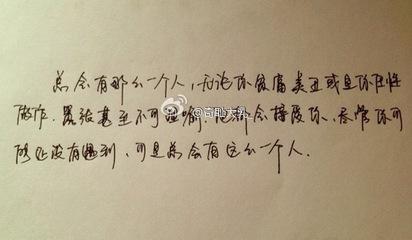 总会有那么一个人,无论你做富美丑或是你任性
做作.嚣张甚至不可理喻.他都会接受你.尽管你可
能还没有遇到,可是总会有这么一个人.
@奇葩大